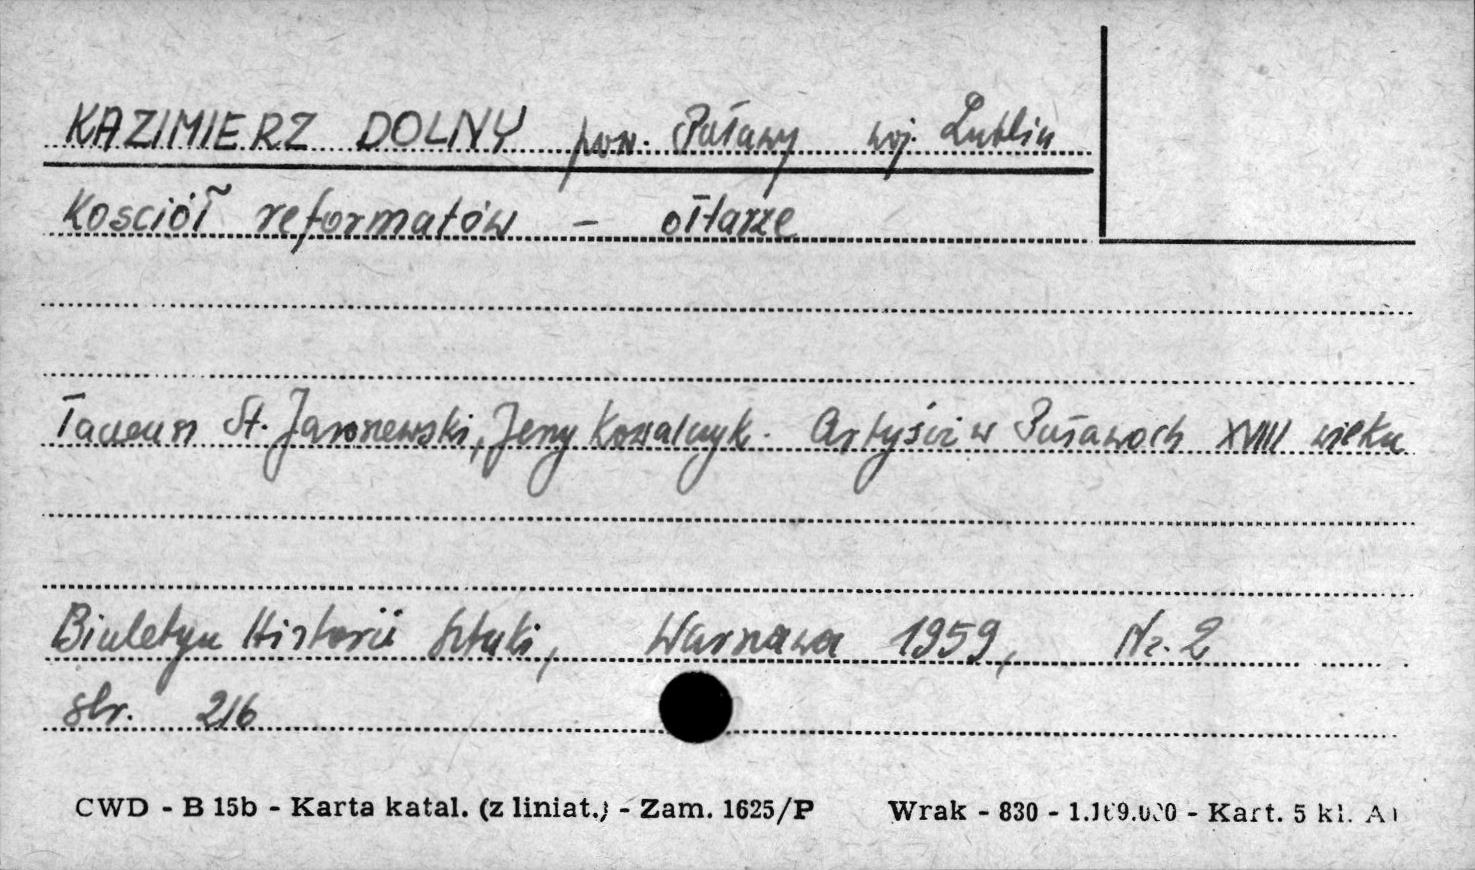 KAZIMIERZ DOLNY pow. Puławy woj. Lublin
Kosciół reformatów - ołtarze
Tadeusz St. Jaroszewski, Jerzy Kowalczyk. Artyści w Puławach XVIII wieku
Biuletyn Historii Sztuki, Warszawa 1959, Nr. 2
str. 216
CWD - B 15b - Karta katal. (z liniat.) - Zam. 1625/P Wrak - 830 - Kart. 5 kl.